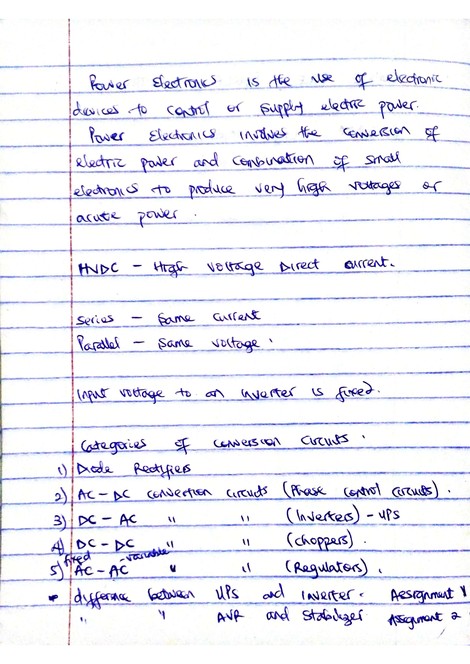 Power Electronics is the use of electronic
devices to control or supply electric power.
Power Electronics involves the conversion of
electric power and combination of small
electronics to produce very high voltages or
acute power.
HVDC - High voltage Direct current.
Series - Same current
Parallel - Same voltage.
Input voltage to an inverter is fixed.
Categories of conversion circuits.
1) Diode Rectifiers
2) AC - DC convertion circuits (Phase control circuits).
3) DC - AC " " (Inverters) - UPS
4) DC - DC " " (choppers).
fixed - variable
5) AC - AC " " (Regulators).
• difference between UPS and inverter. Assignment 1
" " AVR and Stabilizer Assignment 2